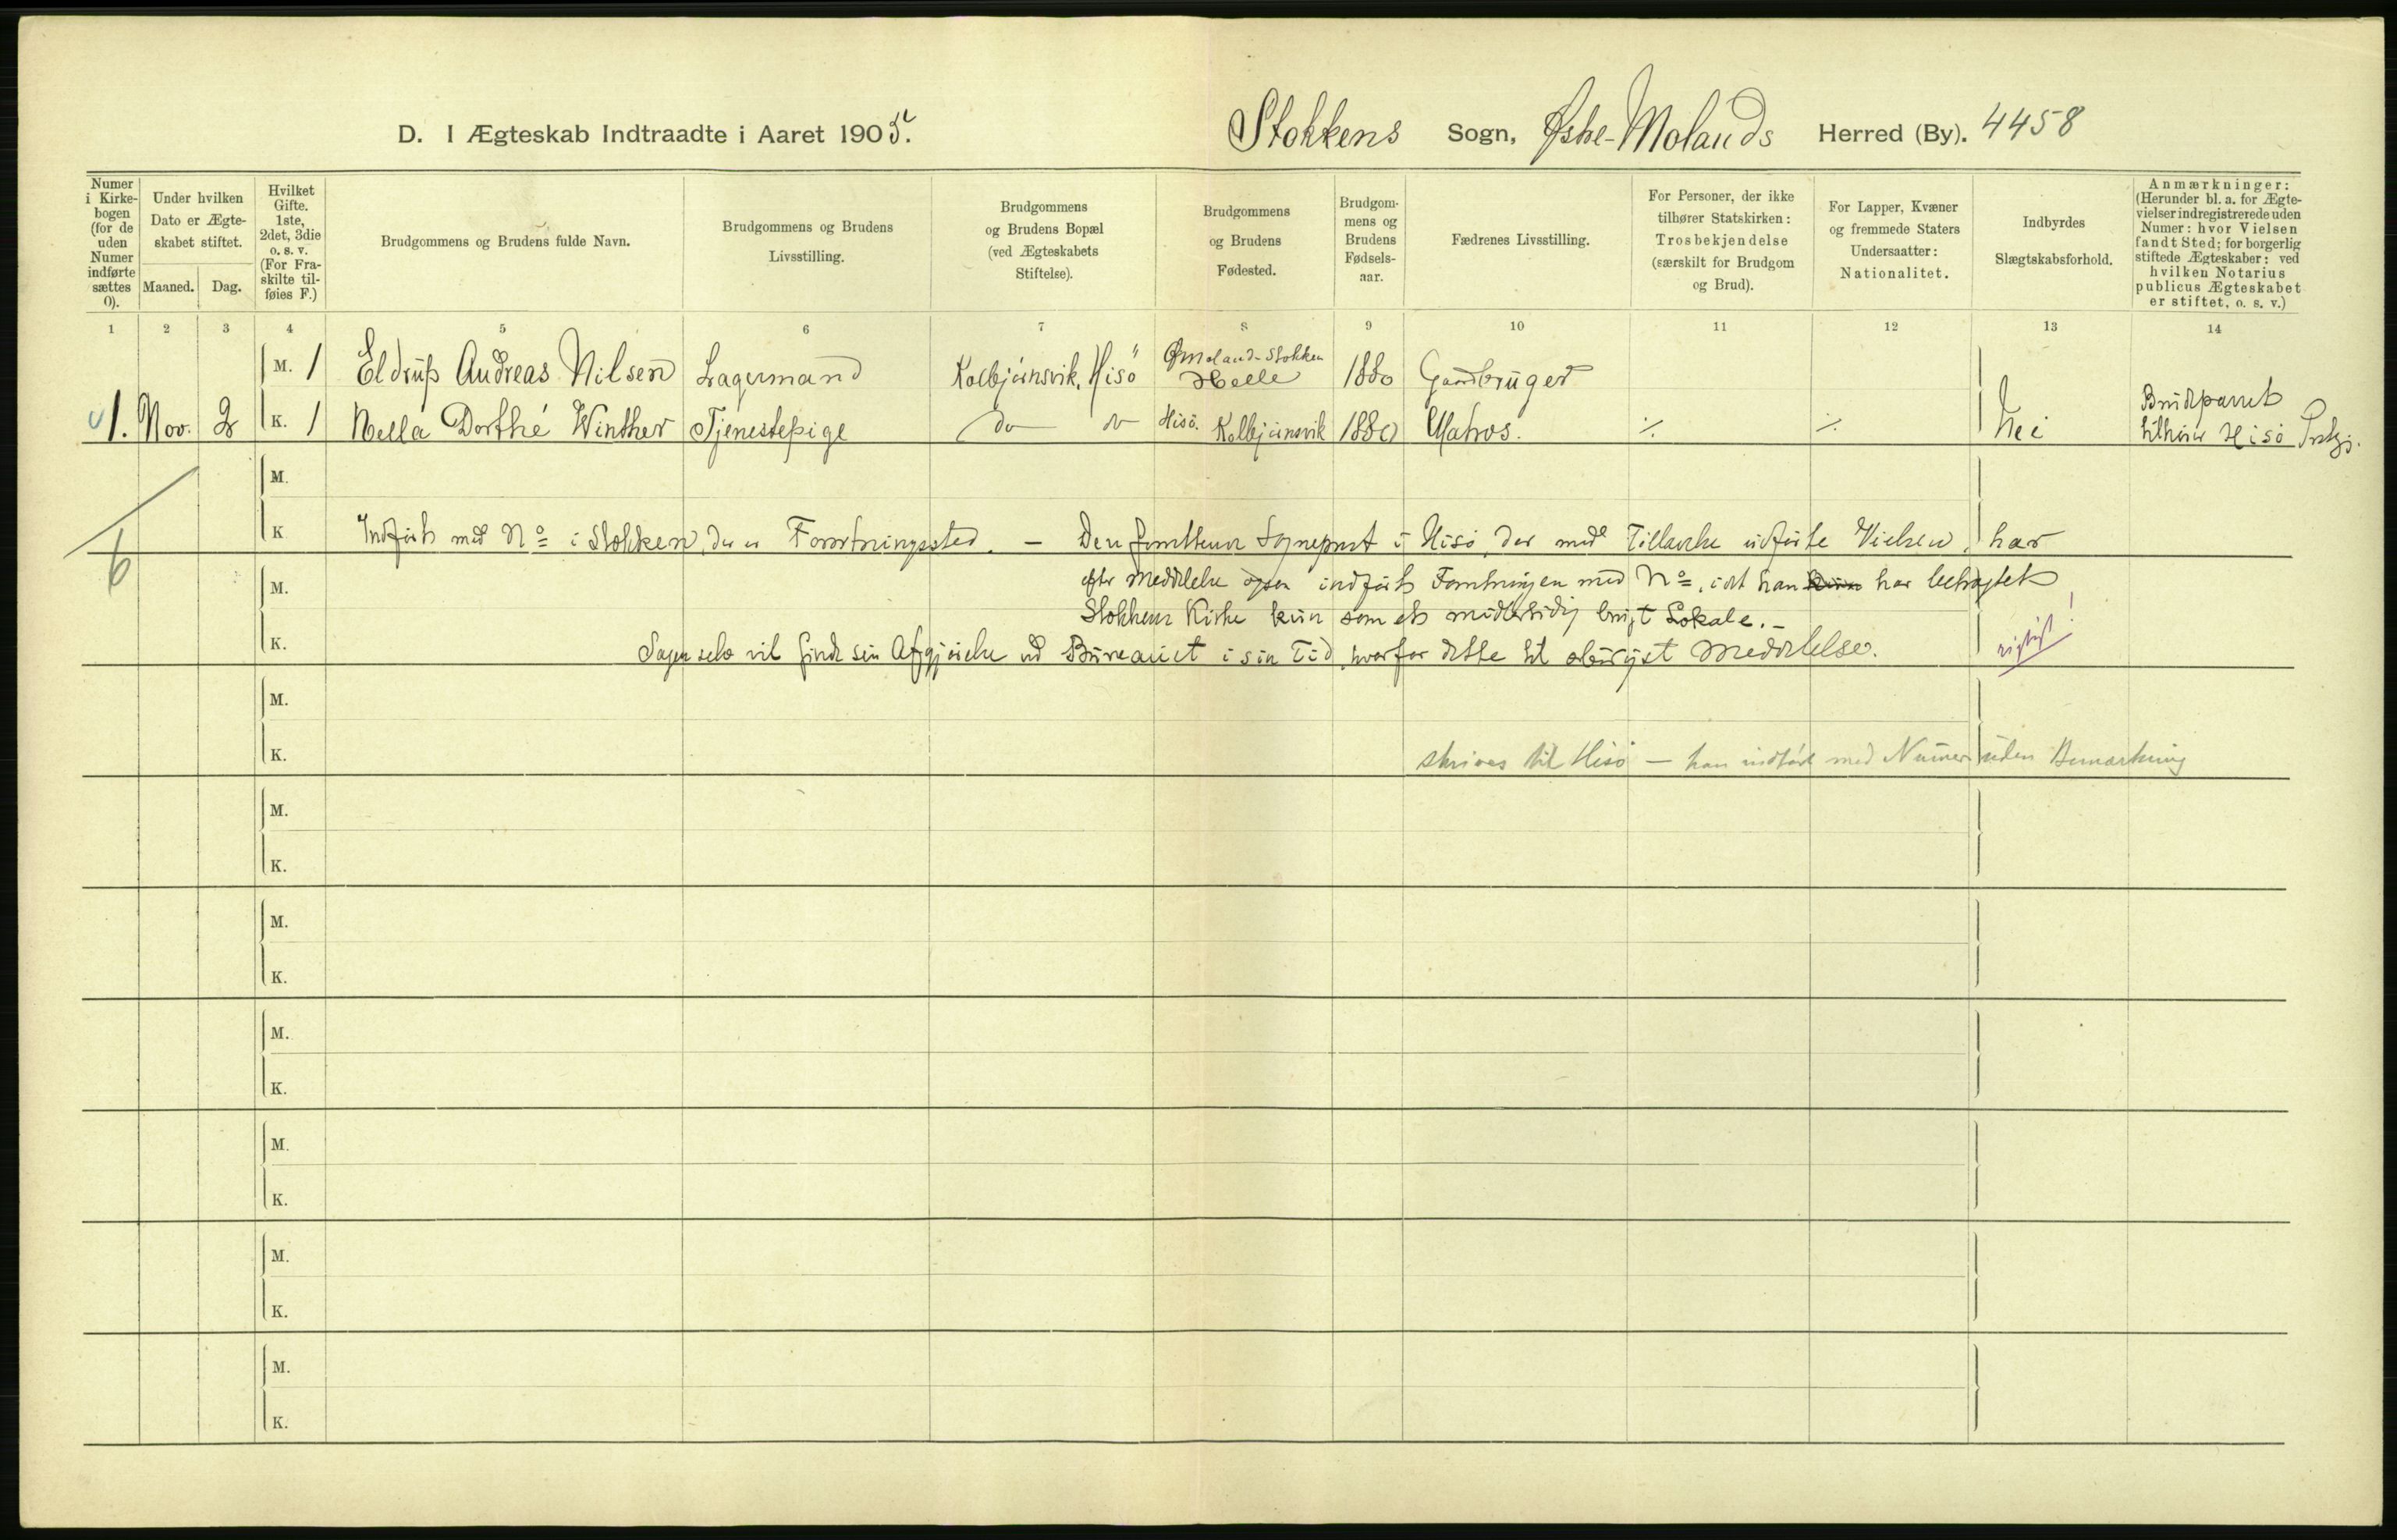 D. I Ægteskab Indtraadte i Aaret 1905.
Stokkens Sogn, Østre-Molands Herred (By). 4458
Numer i Kirkebogen (for de uden Numer indførte sættes 0).
Under hvilken Dato er Ægteskabet stiftet.
Maaned. Dag.
Hvilket Gifte. 1ste, 2det, 3die o. s. v. (For Fraskilte tilføies F.)
Brudgommens og Brudens fulde Navn.
Brudgommens og Brudens Livsstilling.
Brudgommens og Brudens Bopæl (ved Ægteskabets Stiftelse).
Brudgommens og Brudens Fødested.
Brudgommens og Brudens Fødselsaar.
Fædrenes Livsstilling.
For Personer, der ikke tilhører Statskirken: Trosbekjendelse (særskilt for Brudgom og Brud).
For Lapper, Kvæner og fremmede Staters Undersaatter: Nationalitet.
Indbyrdes Slægtskabsforhold.
Anmærkninger: (Herunder bl. a. for Ægtevielser indregistrerede uden Numer: hvor Vielsen fandt Sted; for borgerlig stiftede Ægteskaber: ved hvilken Notarius publicus Ægteskabet er stiftet, o. s. v.)
1 2 3 4 5 6 7 8 9 10 11 12 13 14
M. 1 Eldrup Andreas Nilsen Lagermand Kolbjörnsvik, Hisö Ømoland-Stokken Helle 1880 Gaardbruger
1. Nov. 2 K. 1 Nella Dorthé Winther Tjenestepige do Hisö. Kolbjörnsvik 1880 Matros. ⁒ ⁒ Nei Brudparret tilhører Hisö Prstgj.
M.
K Indført med No i Stokken, der er Forretningssted. – Den Sogneprest i Hisö, der med Tilladelse udførte Vielsen, har
6
M. efter Meddelelse ogsaa indført Forretningen med No, idet han har betragtet
Stokken Kirke kun som et midlertidig brugt Lokale. –
K. Sagen selv vil finde sin Afgjørelse ved Bureauet i sin Tid, hvorfor dette til Meddelelse. rigtigt!
M.
K. skrives til Hisö – han indført med Numer uden Bemærkning
M.
K.
M.
K.
M.
K.
M.
K.
M.
K.
M.
K.